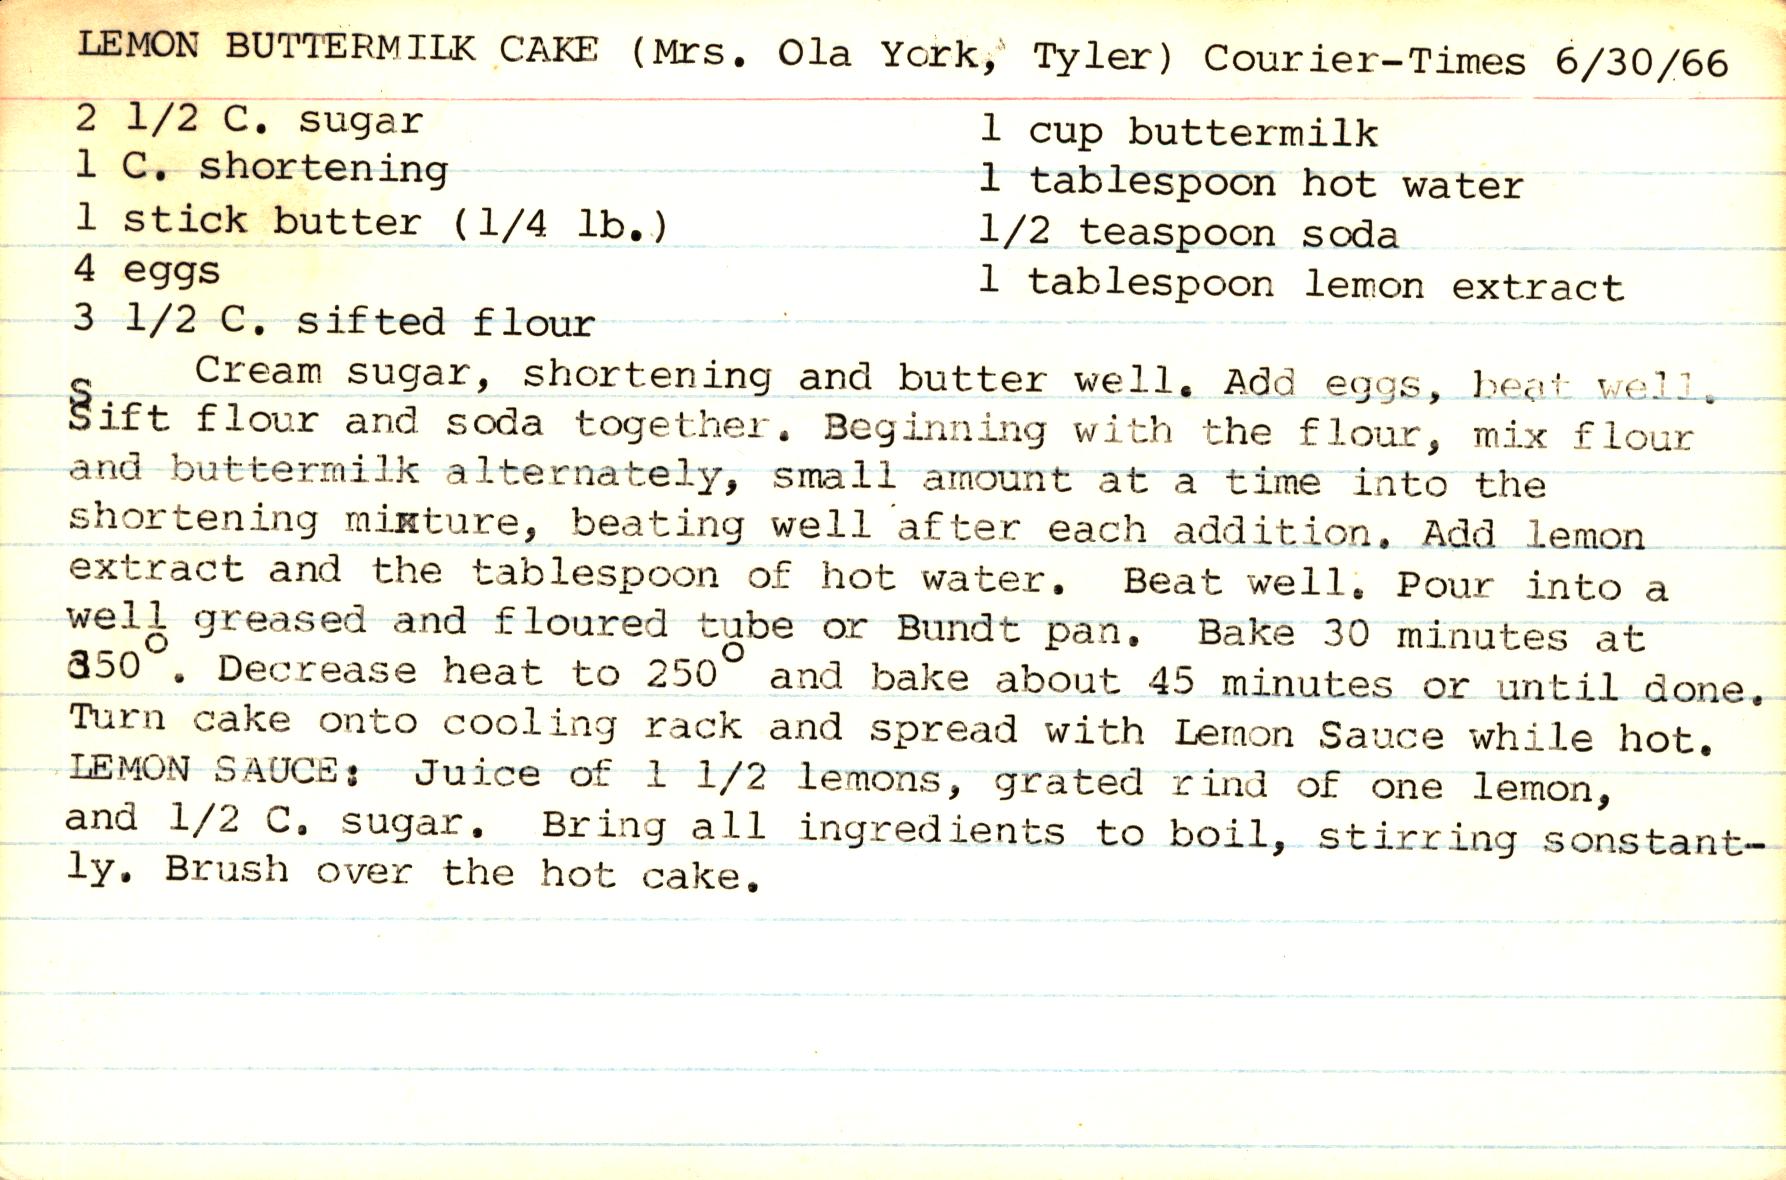 LEMON BUTTERMILK CAKE (Mrs. Ola York, Tyler) Courier-Times 6/30/66
2 1/2 C. sugar
1 C. shortening
1 stick butter (1/4 lb.)
4 eggs
3 1/2 C. sifted flour
1 cup buttermilk
1 tablespoon hot water
1/2 teaspoon soda
1 tablespoon lemon extract
Cream sugar, shortening and butter well. Add eggs, beat well.
Sift flour and soda together. Beginning with the flour, mix flour
and buttermilk alternately, small amount at a time into the
shortening mixture, beating well after each addition. Add lemon
extract and the tablespoon of hot water. Beat well. Pour into a
well greased and floured tube or Bundt pan. Bake 30 minutes at
350°. Decrease heat to 250° and bake about 45 minutes or until done.
Turn cake onto cooling rack and spread with Lemon Sauce while hot.
LEMON SAUCE: Juice of 1 1/2 lemons, grated rind of one lemon,
and 1/2 C. sugar. Bring all ingredients to boil, stirring sonstant-
ly. Brush over the hot cake.